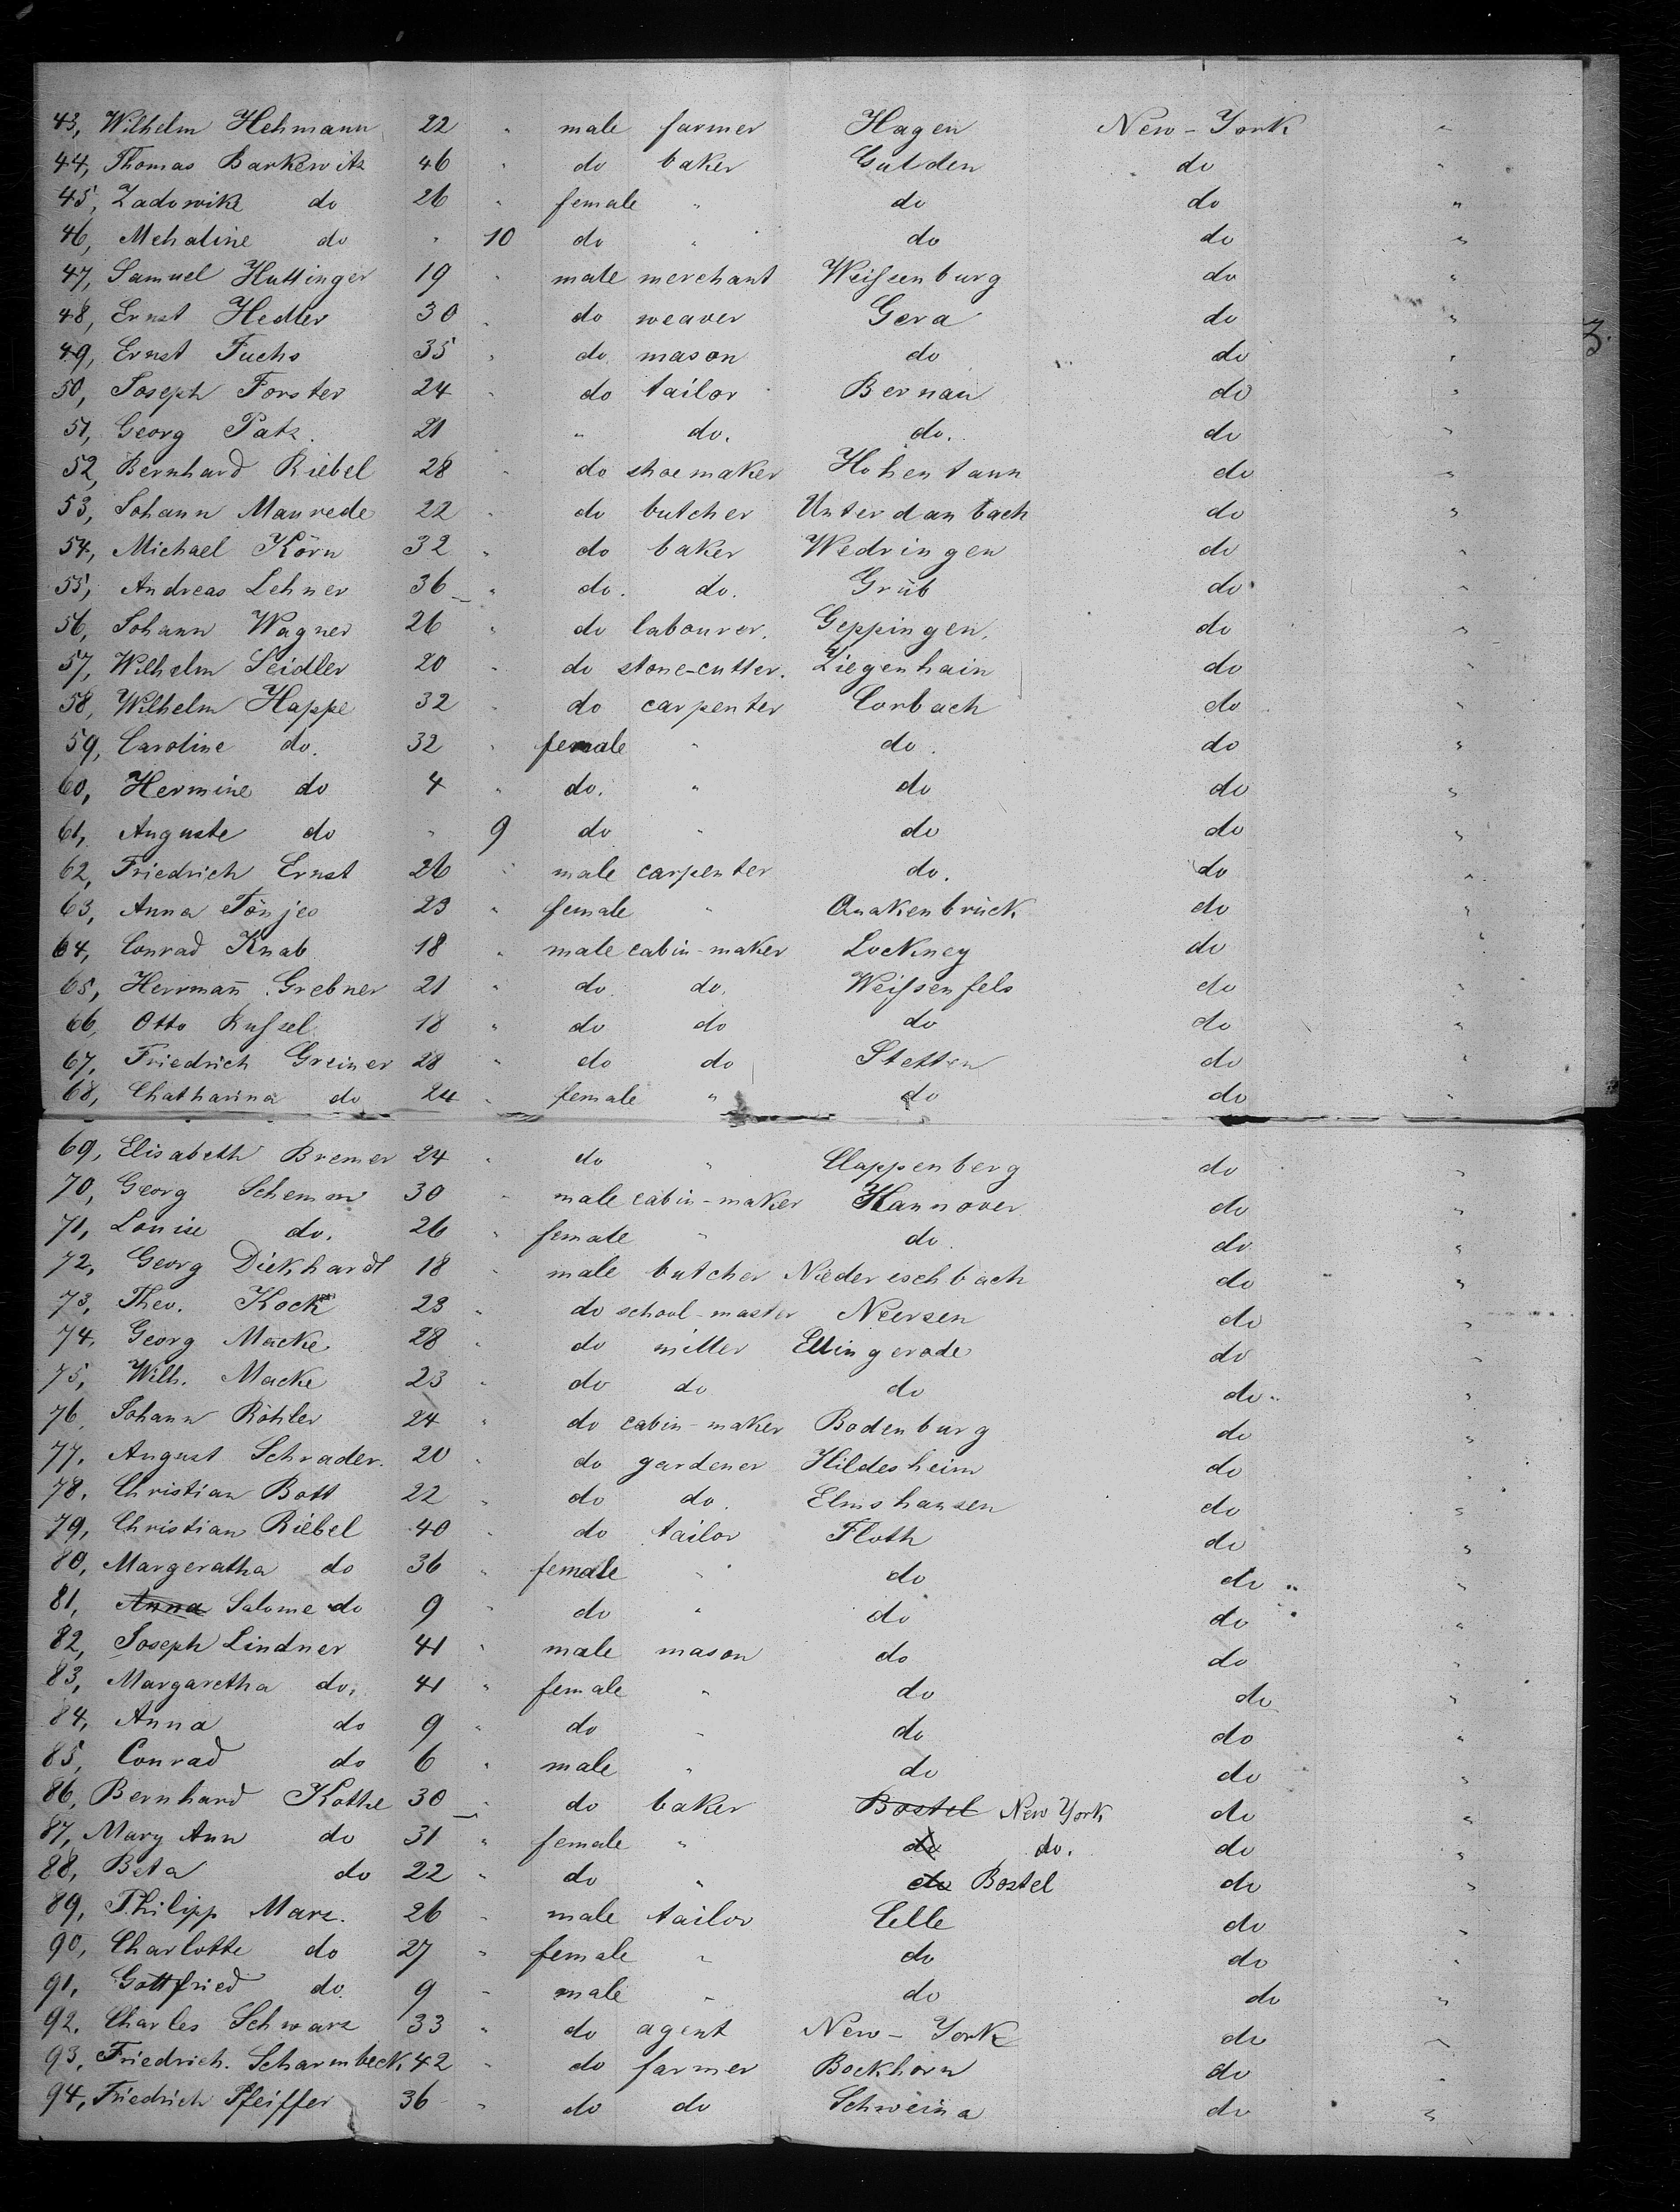 43, Wilhelm Hehmann 22 " male farmer Hagen New-York "
44, Thomas Barkewitz 46 " do baker Gulden do "
45, Ladowike do 26 " female " do do "
46, Mehaline do " 10 do " do do "
47, Samuel Huttinger 19 " male merchant Weißenburg do "
48, Ernst Hedler 30 " do weaver Gera do "
49, Ernst Fuchs 35 " do mason do do "
50, Joseph Forster 24 " do tailor Bernau do "
51, Georg Patz. 21 " do. do. do "
52, Bernhard Riebel 28 " do shoemaker Hohentann do "
53, Johann Maurede 22 " do butcher Unterdanbach do "
54, Michael Körn 32 " do baker Wedringen do "
55, Andreas Lehner 36 " do. do. Grüb do "
56, Johann Wagner 26 " do labourer. Geppingen. do "
57, Wilhelm Seidler 20 " do stone-cutter. Ziegenhain do "
58, Wilhelm Happe 32 " do carpenter Corbach do "
59, Caroline do. 32 " female " do. do "
60, Hermine do 4 " do. " do do "
61, Auguste do " 9 do " do do "
62, Friedrich Ernst 26 " male carpenter do. do "
63, Anna Tönjes 23 " female " Quakenbrück do "
64, Conrad Knab 18 " male cabin-maker Lockney do "
65, Hermañ Grebner 21 " do. do. Weißenfels do "
66, Otto Rußel 18 " do do do do "
67, Friedrich Greiner 28 " do do Stetten do "
68, Chatharina do 24 " female " do do "
69, Elisabeth Bremer 24 " do " Clappenberg do "
70, Georg Schemm 30 " male cabin-maker Hannover do "
71, Louise do. 26 " female " do. do "
72, Georg Diekhardt 18 " male butcher Niedereschbach do "
73, Theo. Kock 23 " do school-master Neersen do "
74, Georg Macke 28 " do miller Ellingerode do "
75, Wilh. Macke 23 " do do do do "
76, Johann Röhler 24 " do cabin-maker Bodenburg do "
77, August Schrader. 20 " do gardener Hildesheim do "
78, Christian Bott 22 " do do. Elmshausen do "
79, Christian Riebel 40 " do tailor Floth do "
80, Margeratha do 36 " female " do do "
81, Anna Salome do 9 " do " do do "
82, Joseph Lindner 41 " male mason do do "
83, Margaretha do. 41 " female " do do "
84, Anna do 9 " do " do do "
85, Conrad do 6 " male " do do "
86, Bernhard Kothe 30 " do baker Bostel New York do "
87, Mary Ann do 31 " female " do do. do "
88, Beta do 22 " do " do Bostel do "
89, Philipp Marx. 26 " male tailor Celle do "
90, Charlotte do 27 " female " do do "
91, Gottfried do. 9 " male " do do "
92, Charles Schwarz 33 " do agent New-York do "
93, Friedrich. Scharmbeck, 42 " do farmer Bockhorn do "
94, Friedrich Pfeiffer 36 " do do Schweina do "
3.